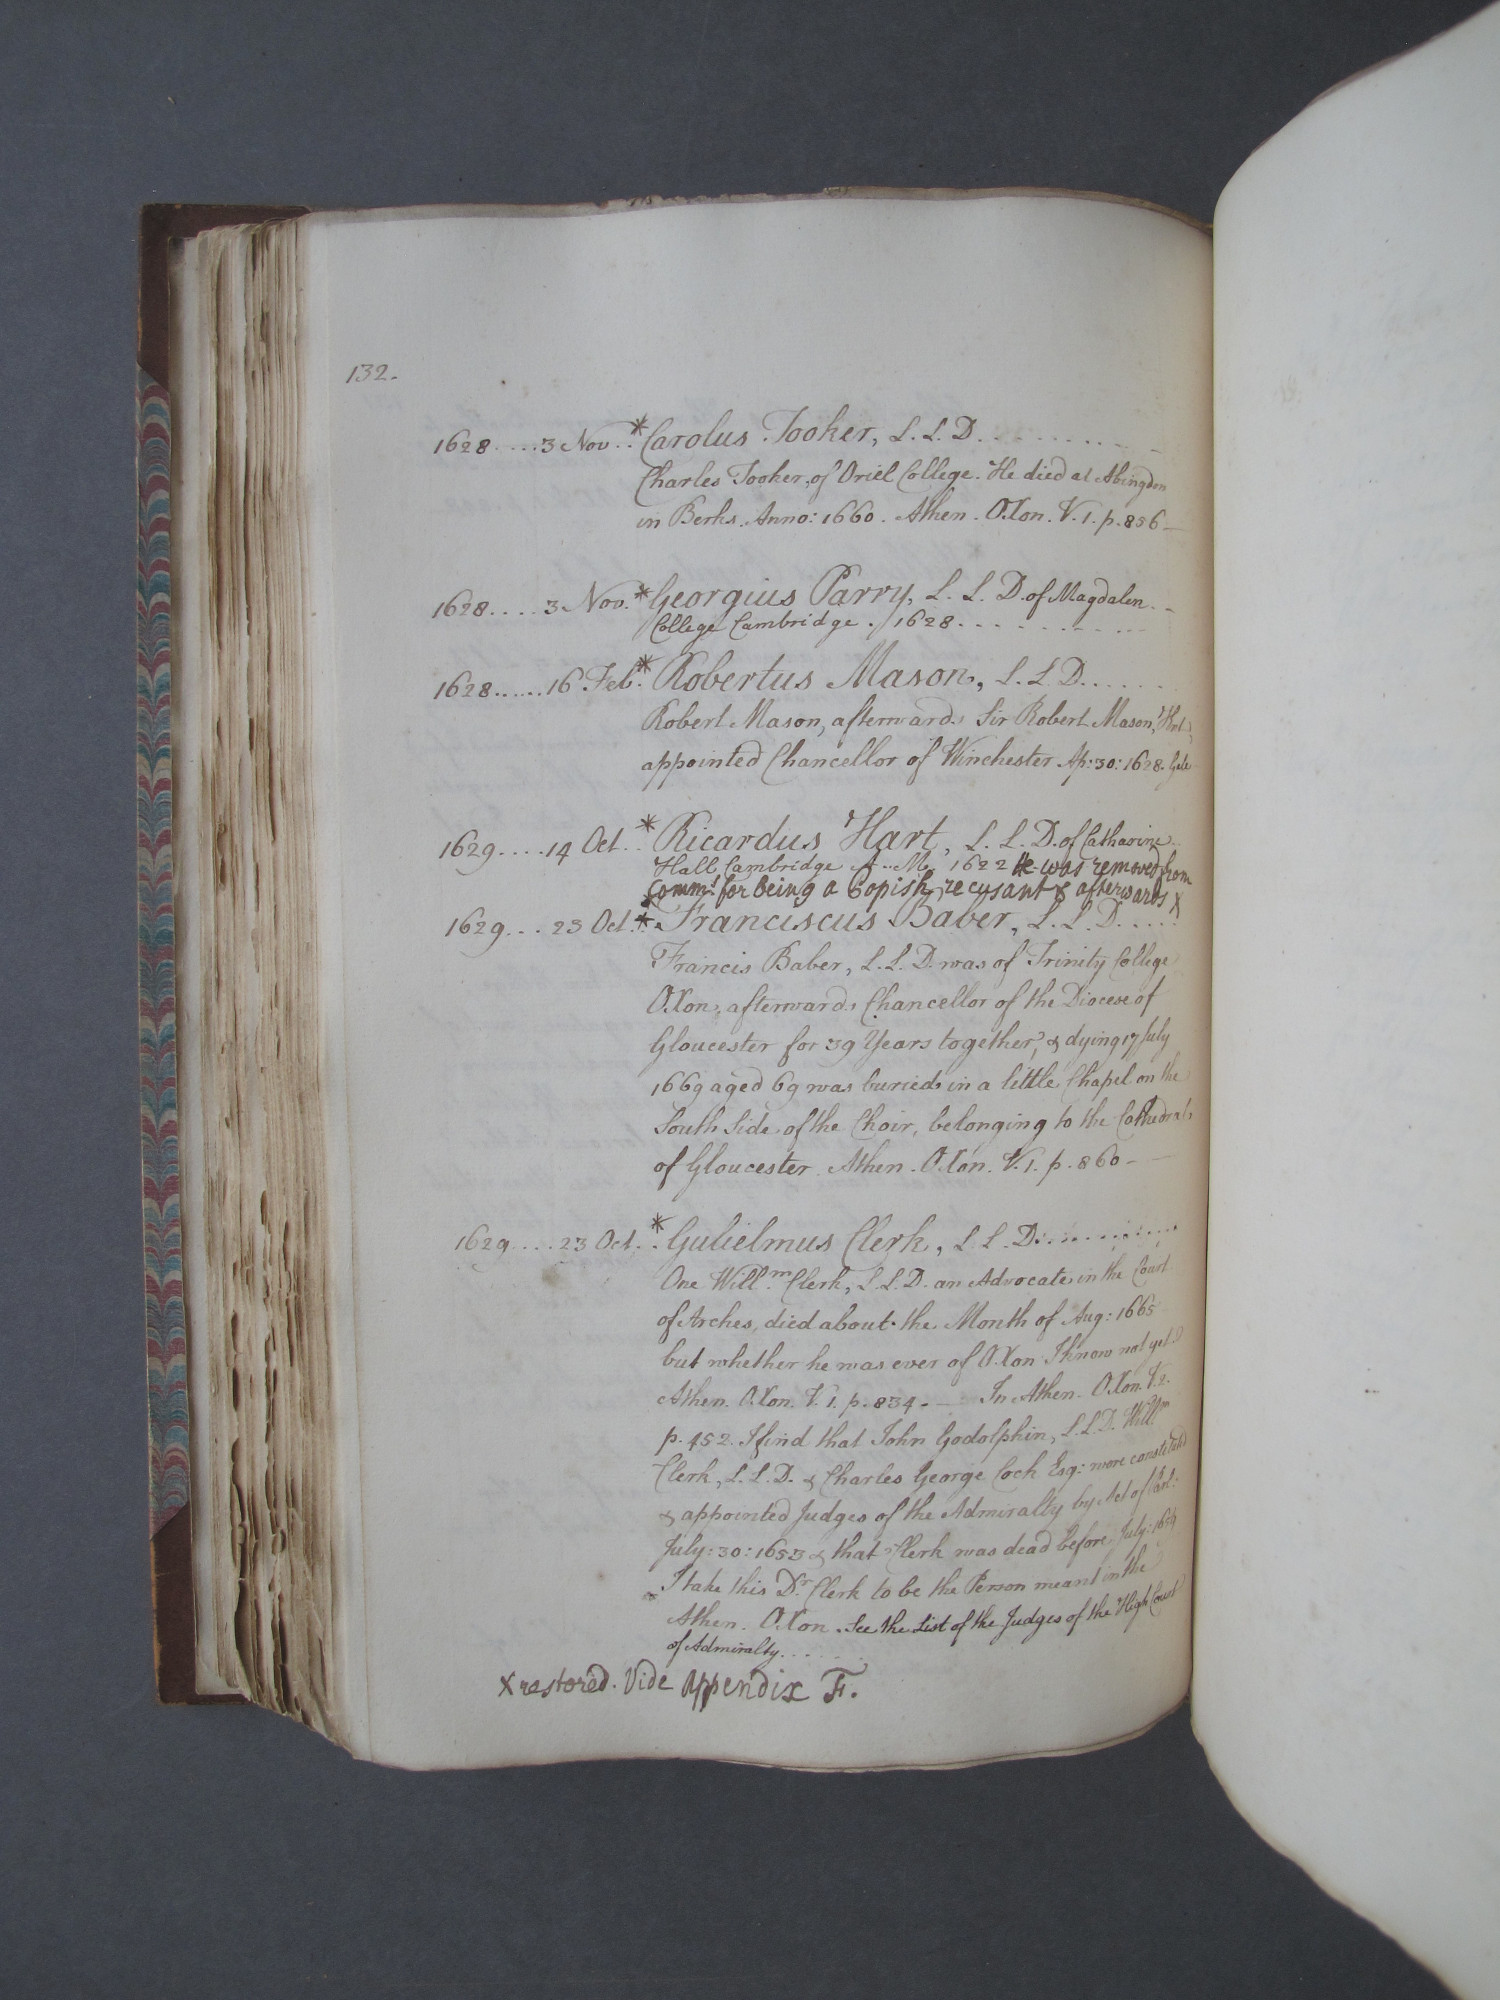 132.
1628.....3 Nov..*Carolus Tooker, L.L.D..........
Charles Tooker, of Oriel College. He died at Abingdon
in Berks. Anno: 1660. Athen. Oxon. V.1. p. 856—
1628....3 Nov.*Georgius Parry, L. L. D. of Magdalen..
College Cambridge. 1628..........
1628......16 Feb.*Robertus Mason, L.L.D......
Robert Mason, afterwards Sir Robert Mason, Knt.
appointed Chancellor of Winchester Ap: 30: 1628.
1629....14 Oct..*Ricardus Hart, L. L. D. of Catharine
Hall Cambridge A. M. 1622 He was removed from
Comms. for being a Popish recusant & afterwards X
1629...23 Oct.*.Franciscus Baber, L. L. D.....
Francis Baber, L.L.D. was of Trinity College
Oxon, afterwards Chancellor of the Diocese of
Gloucester for 39 Years together, & dying 17 July
1669 aged 69 was buried in a little Chapel on the
South Side of the Choir, belonging to the Cathedral
of Gloucester. Athen. Oxon. V.1. p. 860—
1629....23 Oct..*.Gulielmus Clerk, L. L. D..........
One Willm. Clerk, L.L.D. an Advocate in the Court
of Arches, died about the Month of Aug: 1665
but whether he was ever of Oxon I know not yet.
Athen. Oxon. V. 1. p. 834.— In Athen. Oxon. V.2.
p. 452. I find that John Godolphin, L.L.D. Willm
Clerk, L.L.D. & Charles George Cock Esq: were constituted
& appointed Judges of the Admiralty by Act of Parl:
July: 30: 1653 & that Clerk was dead before July: 1654
I take this Dr. Clerk to be the Person meant in the
Athen. Oxon. See the List of the Judges of the High Court
of Admiralty......
X restored. Vide Appendix F.